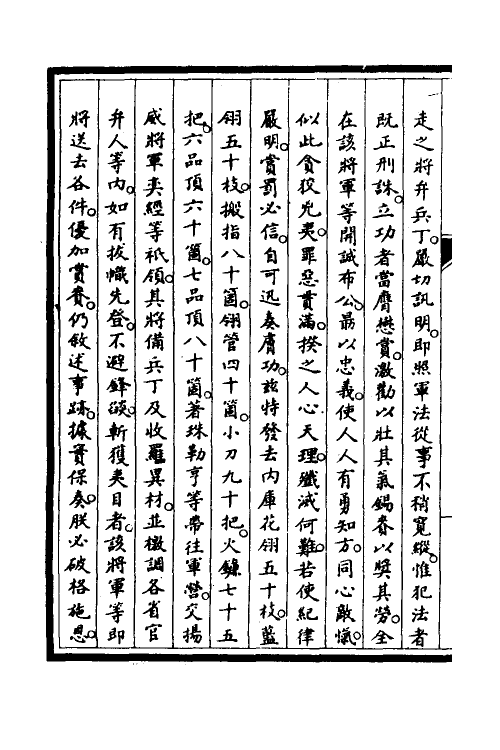 走之將弁兵丁。嚴切訊明。即照軍法從事不稍寬縱。惟犯法者
既正刑誅。立功者當膺懋賞。激勸以壯其氣錫賚以獎其勞。全
在該將軍等開誠布公。勗以忠義。使人人有勇知方。同心敵愾。
似此貪狡兇夷。罪惡貫滿。揆之人心天理。殲滅何難。若使紀律
嚴明。賞罰必信。自可迅奏膚功。茲特發去內庫花翎五十枝。藍
翎五十枝。搬指八十箇。翎管四十箇。小刀九十把。火鐮七十五
把。六品頂六十箇。七品頂八十箇。著珠勒亨等帶往軍營。交揚
威將軍奕經等祇領。其將備兵丁及收羅異材。並檄調各省官
弁人等內。如有拔幟先登。不避鋒燄。斬獲夷目者。該將軍等即
將送去各件。優加賞賚。仍敘述事跡。據實保奏。朕必破格施恩。